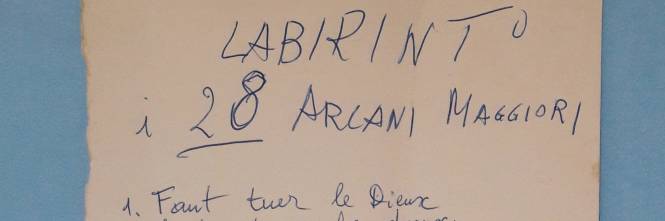 LABIRINTO
i 28 ARCANI MAGGIORI
1. Faut tuer le Dieux